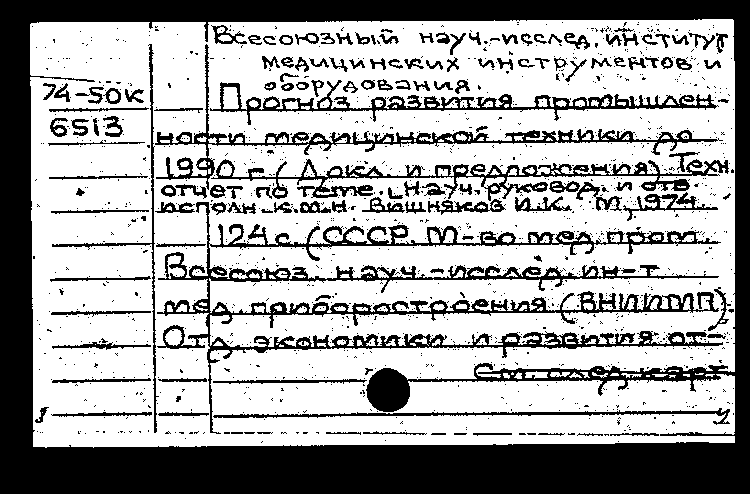 Всесоюзный науч.-исслед. институт
медицинских инструментов и
оборудования.
74-50К
Прогноз развития промышлен-
6513
ности медицинской техники до
1990 г. (Докл. и предложения) Техн.
отчет по теме. [Науч. руковод. и отв.
исполн. к.м.н. Вишняков И.К. М., 1974.
124 с. (СССР. М-во мед. пром.
Всесоюз. науч.-исслед. ин-т
мед. приборостроения (ВНИИМП).
Отд. экономики и развития от-
См. след. карт.